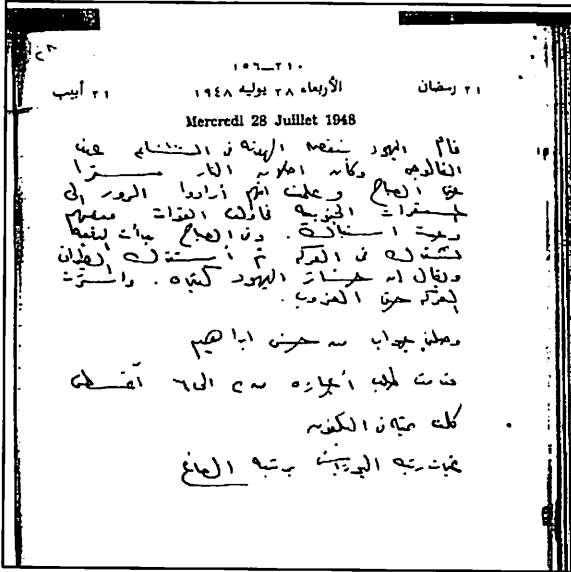 ٢١٠–١٥٦
٢١ رمضان الأربعاء ٢٨ يوليه ١٩٤٨ ٢١ أبيب
Mercredi 28 Juillet 1948
قام اليهود بنقض الهدنة في الساعة ١٠٠٠ عند
الفالوجه وكان اطلاق النار مستمرا
حتى الصباح وعلمت انهم أرادوا المرور الى
المستعمرات الجنوبية فأرادت القوات منعهم
وبدأ اشتباك. وفي الصباح بدأت المدفعية
تشترك في المعركة ثم اشترك الطيران
ويقال ان خسائر اليهود كثيره. واستمرت
المعركة حتى الغروب.
وصلني جواب من حسن ابراهيم
قدمت طلب أجازه من ٢ الى ٦ أغسطس
كلمت في التليفون
غيرت رتبة اليوزباشي برتبة الصاغ